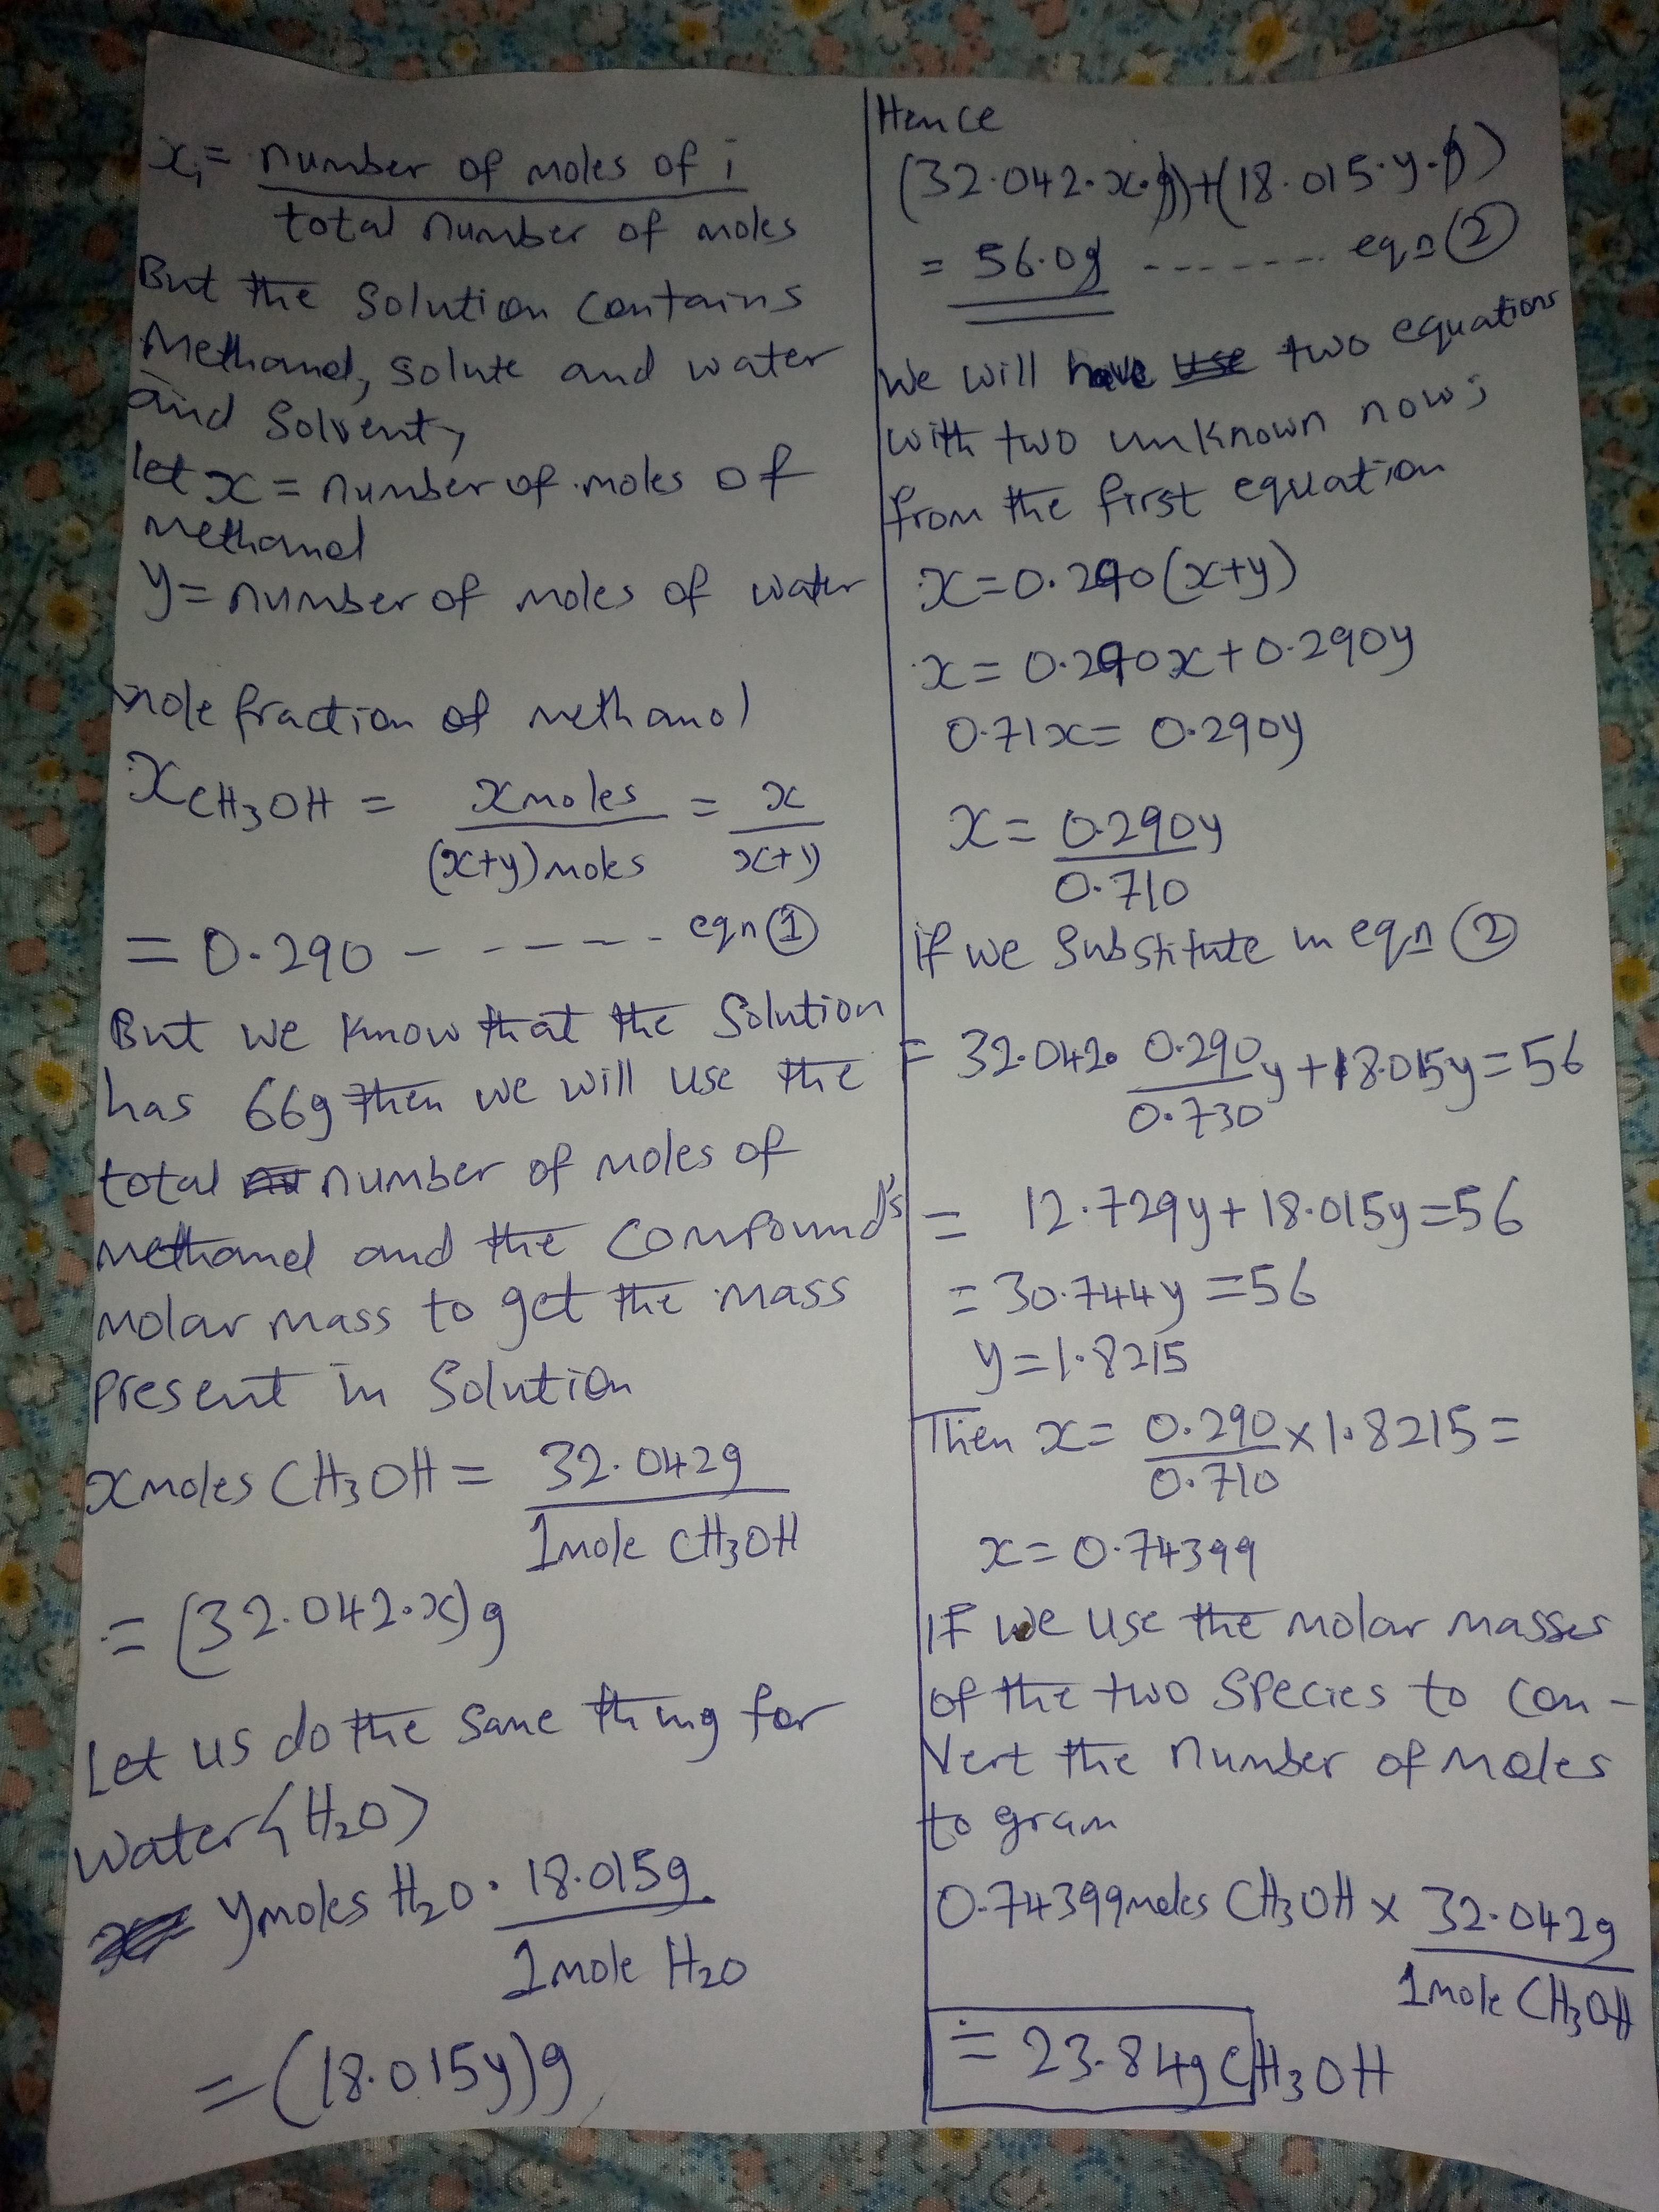 xi = number of moles of i
total number of moles
But the solution contains
Methanol, solute and water
and solvent,
let x = number of moles of
methanol
y = number of moles of water
mole fraction of methanol
XCH3OH = x moles / (x+y) moles = x / x+y
= 0.290 ------ eqn ①
But we know that the solution
has 66g then we will use the
total number of moles of
methanol and the compound's
molar mass to get the mass
present in solution
x moles CH3OH = 32.042g / 1mole CH3OH
= (32.042·x)g
Let us do the same thing for
water (H2O)
y moles H2O · 18.015g / 1mole H2O
= (18.015y)g
Hence
(32.042·x·g)+(18.015·y·g)
= 56.0g ------- eqn ②
We will have use two equations
with two unknown now;
from the first equation
x=0.290(x+y)
x=0.290x+0.290y
0.71x= 0.290y
x= 0.290y / 0.710
if we substitute in eqn ②
= 32.042· 0.290/0.730 y + 18.015y = 56
= 12.729y + 18.015y = 56
= 30.744y = 56
y = 1.8215
Then x= 0.290/0.710 × 1.8215 =
x = 0.74399
IF we use the molar masses
of the two species to con-
vert the number of moles
to gram
0.74399moles CH3OH × 32.042g / 1mole CH3OH
= 23.84g CH3OH